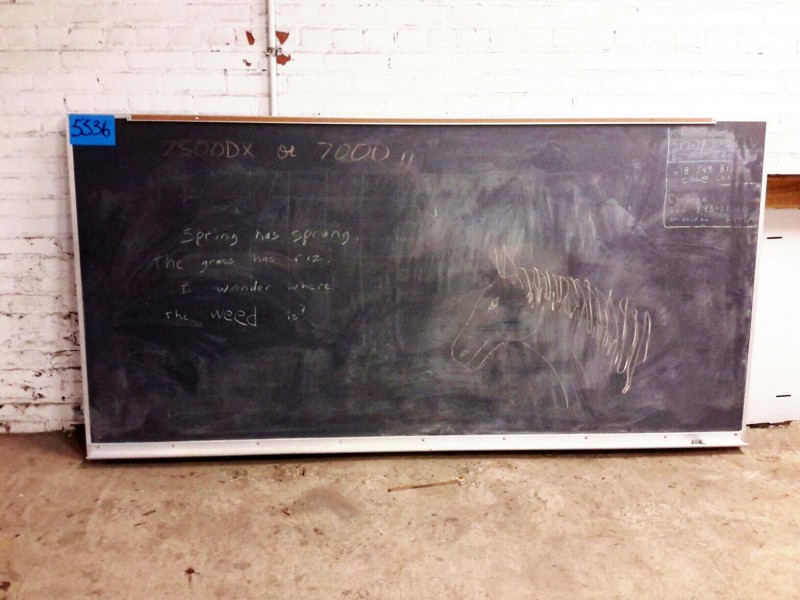 5536
7500DX or 7000
Spring has sprung.
The grass has riz.
I wonder where
The weed is?